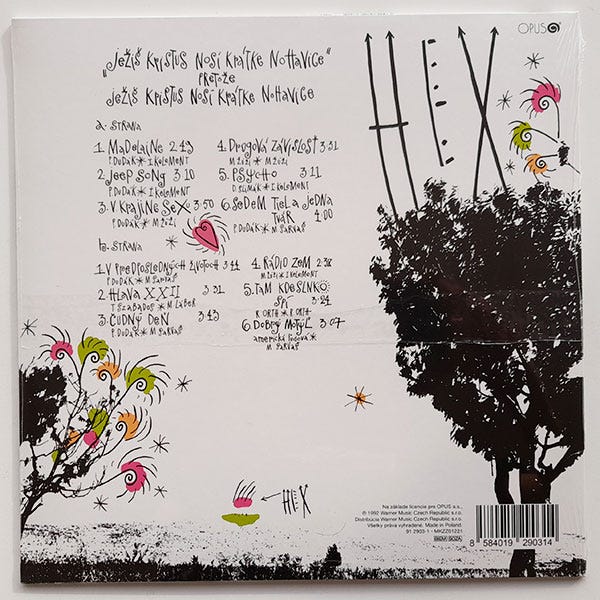 OPUS
HEX
„Ježiš Kristus nosí krátke nohavice"
pretože
Ježiš Kristus nosí krátke nohavice
a. strana
1. Madelaine 2 43
P. Dudák * I. Kolement
2. Jeep Song 3 10
P. Dudák * I. Kolement
3. V krajine sexu 3 50
P. Dudák * M. Žúži
4. Drogová závislosť 3 31
M. Žúži * M. Žúži
5. Psycho 3 11
D. Slimák * I. Kolement
6. Sedem tiel a jedna
tvár 4 00
P. Dudák * M. Sarvaš
b. strana
1. V predposledných životoch 3 44
2. Hlava XXII 3 31
T. Szabados * M. Lábor
3. Čudný deň 3 43
P. Dudák * M. Sarvaš
4. Rádio Zem
5. Tam kdesi
spí 3 24
R. Orth * R. Orth
6. Dobrý motýľ 3 07
americká ľudová *
M. Sarvaš
HEX
Na základe licencie pre OPUS a.s.,
© 1992 Warner Music Czech Republic s.r.o.
Distribúcia Warner Music Czech Republic s.r.o.
Všetky práva vyhradené. Made in Poland.
91 2903-1 - MKZZ51221
BIEM SOZA
8 584019 290314